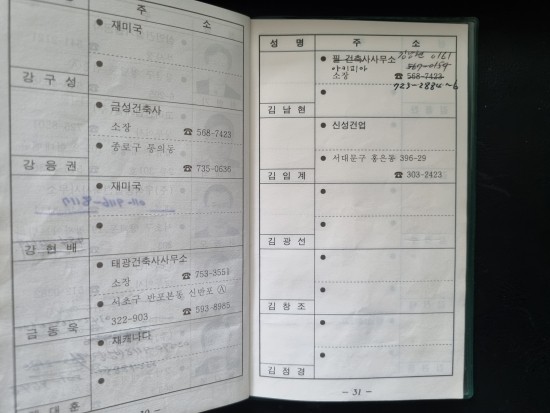 주 소
재미국
강 구 성
금성건축사
소장
☎ 568-7423
종로구 동의동
☎ 735-0636
강 응 권
재미국
강 현 배
태광건축사사무소
소장 ☎ 753-3551
서초구 반포본동 신반포 Ⓐ
322-903 ☎ 593-8985
금 동 욱
재캐나다
대 훈
성 명 주 소
필 건축사사무소 0161
아이피아 567-0154
소장 ☎ 568-7423
723-2884~6
김 남 현
신성건업
서대문구 홍은동 396-29
☎ 303-2423
김 임 계
김 광 선
김 창 조
김 정 경
- 31 -